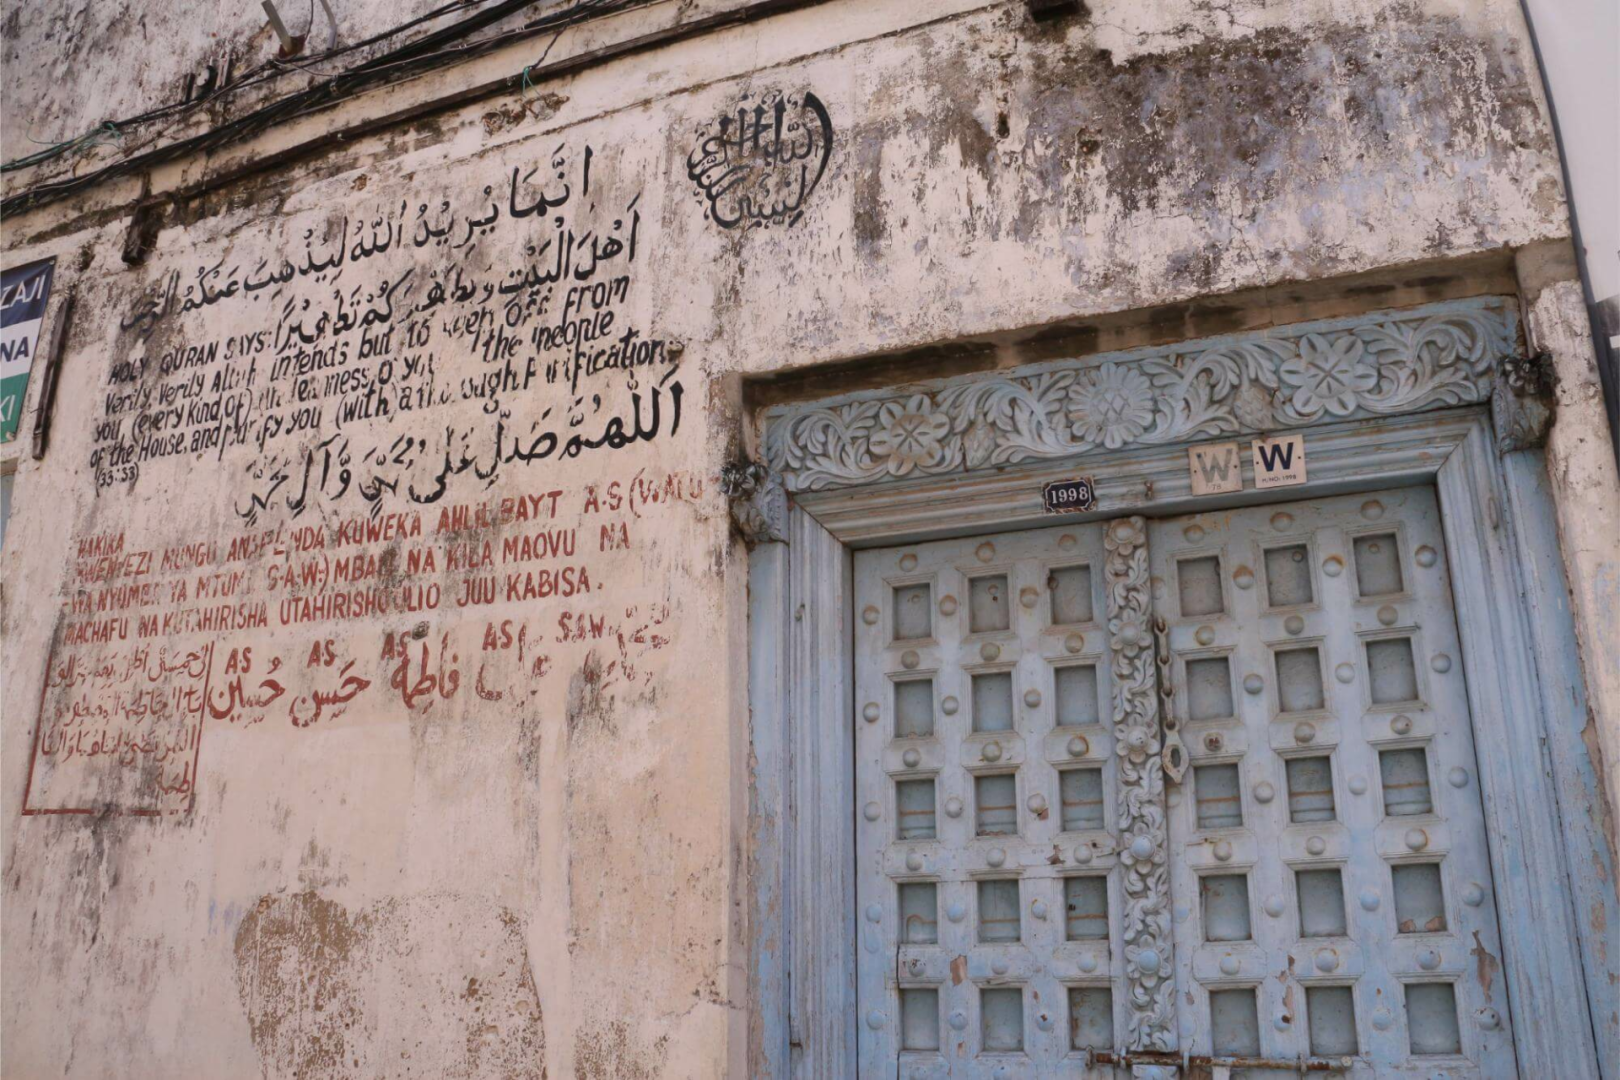 ZAJI
NA
KI
اِنَّمَا يُرِيْدُ اللّٰهُ لِيُذْهِبَ عَنْكُمُ الرِّجْسَ
اَهْلَ الْبَيْتِ وَيُطَهِّرَكُمْ تَطْهِيْرًا
HOLY QURAN SAYS:
Verily, Verily Allah intends but to keep off from
you (every kind of) uncleanness, o you the people
of the House, and purify you (with) a thorough Purification.
(33:33)
اَللّٰهُمَّ صَلِّ عَلٰى مُحَمَّدٍ وَّآلِ مُحَمَّدٍ
HAKIKA
MWENYEZI MUNGU ANAPENDA KUWEKA AHLIL BAYT A.S (WATU
WA NYUMBA YA MTUME S.A.W.) MBALI NA KILA MAOVU NA
MACHAFU NA KUTAHIRISHA UTAHIRISHO ULIO JUU KABISA.
S.A.W AS AS AS AS
فاطمة حَسن حُسين
1998
W
75
W
H.NO: 1998